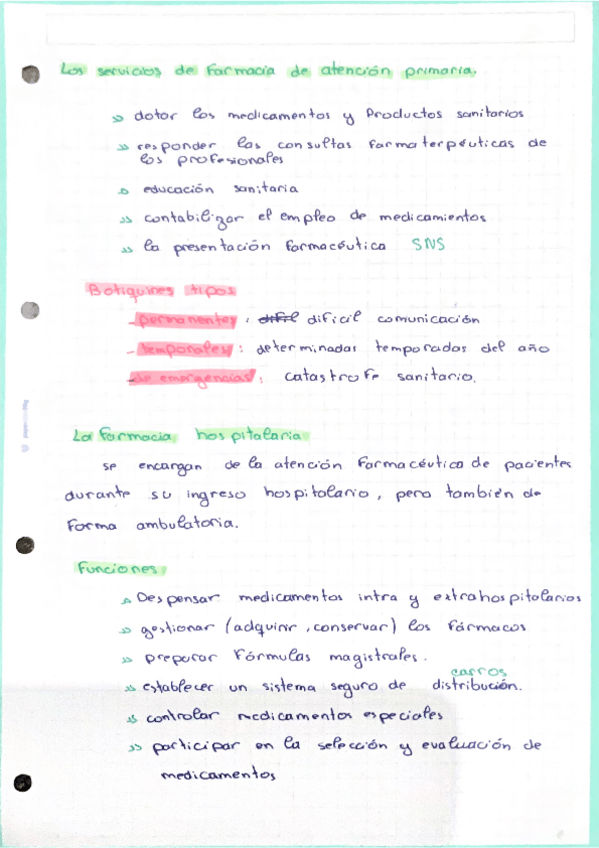 Los servicios de Farmacia de atención primaria.
dotar los medicamentos y Productos sanitarios
responder las consultas farmaterpéuticas de
los profesionales
educación sanitaria
contabilizar el empleo de medicamientos
la presentación farmacéutica SNS
Botiquines tipos
- permanentes: difícil comunicación
- temporales: determinadas temporadas del año
- de emergencias: catastrofe sanitario.
La Farmacia hospitalaria
se encargan de la atención farmacéutica de pacientes
durante su ingreso hospitalario, pero también de
Forma ambulatoria.
Funciones:
Despensar medicamentos intra y extrahospitalarios
gestionar (adquirir, conservar) los fármacos
preparar Fórmulas magistrales.
carros
establecer un sistema seguro de distribución.
controlar medicamentos especiales
participar en la selección y evaluación de
medicamentos